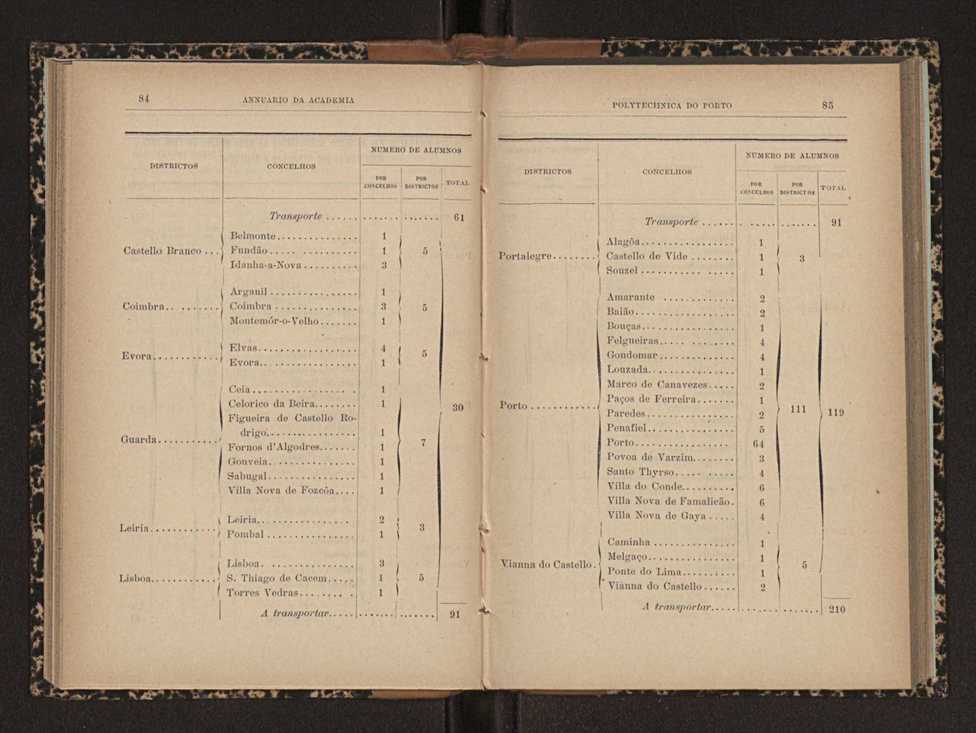 84 ANNUARIO DA ACADEMIA
DISTRICTOS CONCELHOS NUMERO DE ALUMNOS
POR CONCELHOS POR DISTRICTOS TOTAL
Transporte ...... ....... ....... 61
Castello Branco ... Belmonte.............. 1
Fundão.............. 1 5
Idanha-a-Nova......... 3
Coimbra......... Arganil.............. 1
Coimbra.............. 3 5
Montemór-o-Velho....... 1
Evora........... Elvas................ 4 5
Evora................ 1
Guarda.......... Ceia................. 1
Celorico da Beira........ 1 30
Figueira de Castello Ro-
drigo................ 1
Fornos d'Algodres...... 1 7
Gouveia.............. 1
Sabugal.............. 1
Villa Nova de Fozcôa.... 1
Leiria............ Leiria................ 2 3
Pombal............... 1
Lisboa........... Lisboa............... 3
S. Thiago de Cacem..... 1 5
Torres Vedras......... 1
A transportar.... ....... ....... 91
POLYTECHNICA DO PORTO 85
DISTRICTOS CONCELHOS NUMERO DE ALUMNOS
POR CONCELHOS POR DISTRICTOS TOTAL
Transporte ...... ....... ....... 91
Portalegre....... Alagôa............... 1
Castello de Vide........ 1 3
Souzel............... 1
Porto........... Amarante............. 2
Baião................ 2
Bouças............... 1
Felgueiras............ 4
Gondomar............. 4
Louzada.............. 1
Marco de Canavezes..... 2
Paços de Ferreira....... 1
Paredes.............. 2 111 119
Penafiel.............. 5
Porto................ 64
Povoa de Varzim....... 3
Santo Thyrso.......... 4
Villa do Conde......... 6
Villa Nova de Famalicão. 6
Villa Nova de Gaya..... 4
Vianna do Castello. Caminha.............. 1
Melgaço.............. 1 5
Ponte do Lima......... 1
Vianna do Castello...... 2
A transportar.... ....... ....... 210